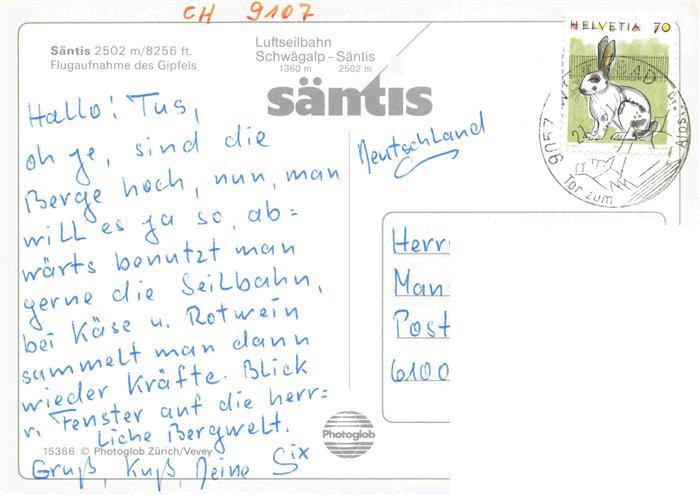 CH 9107
Säntis 2502 m/8256 ft.
Flugaufnahme des Gipfels
Luftseilbahn
Schwägalp – Säntis
1360 m 2502 m
säntis
HELVETIA 70
9057
Tor zum
Hallo! Tus,
oh je, sind die
Berge hoch, nun, man
will es ja so, ab=
wärts benutzt man
gerne die Seilbahn,
bei Käse u. Rotwein
sammelt man dann
wieder Kräfte. Blick
v. Fenster auf die herr=
liche Bergwelt.
Gruß, Kuß, Deine Six
Deutschland
Herr
Man
Post
6100
Photoglob
15366 © Photoglob Zürich/Vevey